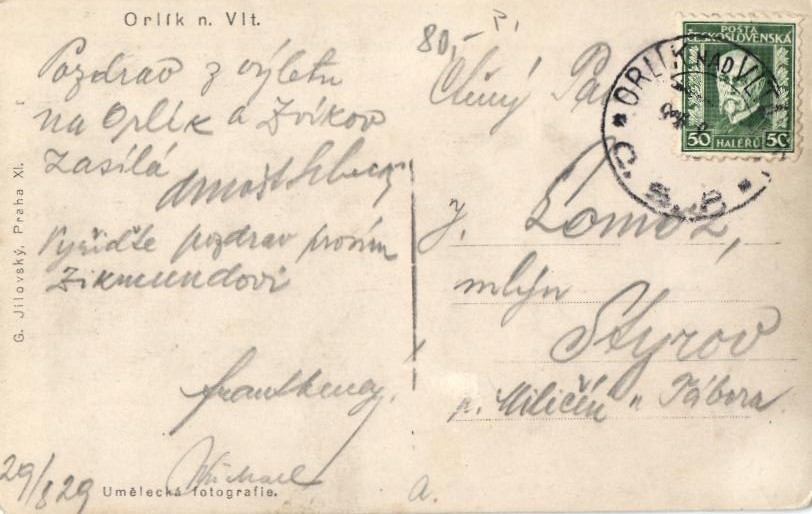 Orlík n. Vlt.
80,-
Pozdrav z výletu
na Orlík a Zvíkov
zasílá
Vyřiďte pozdrav prosím
Zikmundovi
29/8 29
Umělecká fotografie.
G. Jílovský, Praha XI.
Ctěný Pan
J. Lomoz,
mlýn
Styrov
p. Miličín u Tábora
a.
POŠTA
ČESKOSLOVENSKÁ
50 HALÉRŮ 50
ORLÍK NAD VLT
Č.S.P.